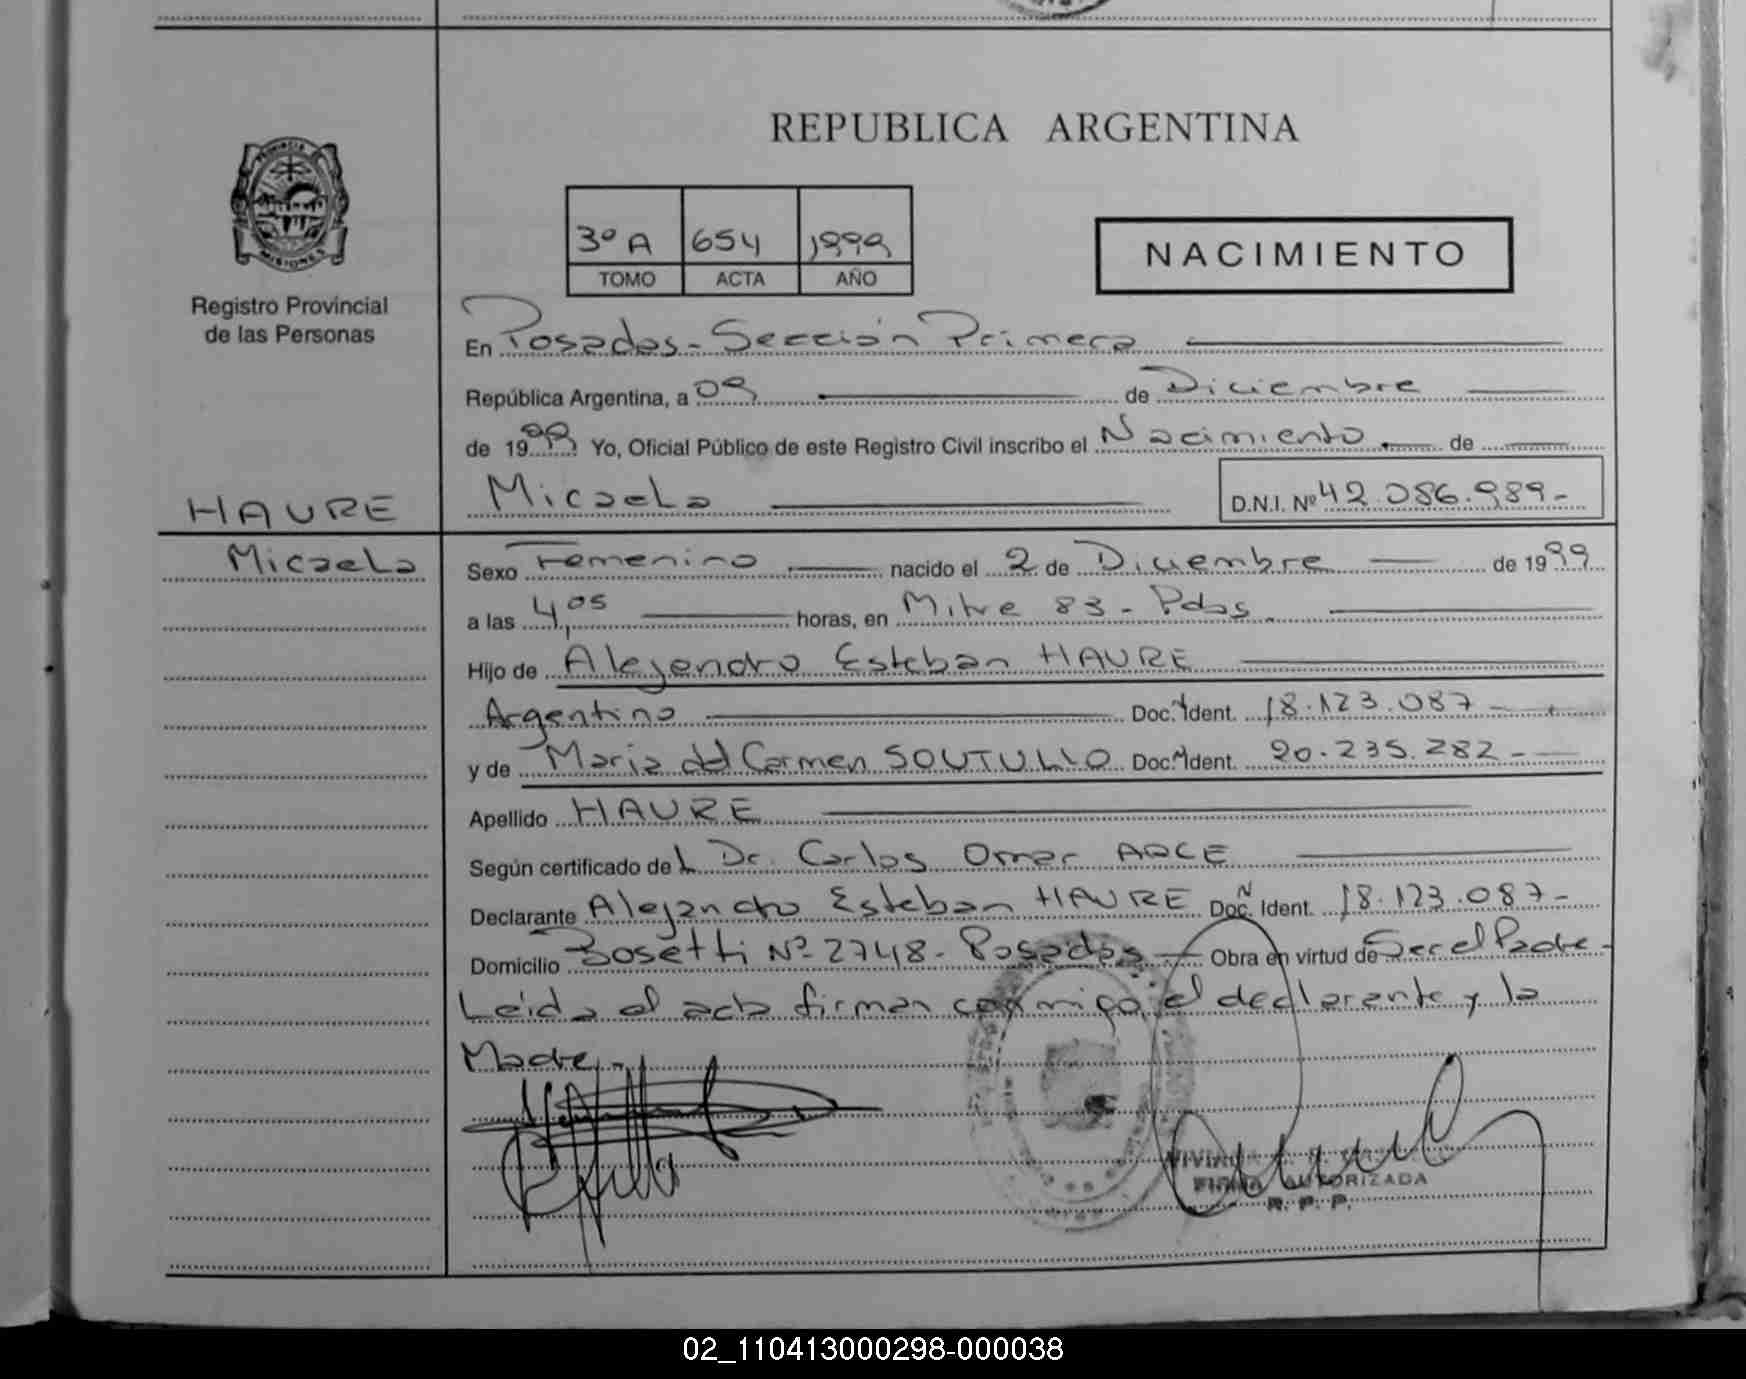 REPUBLICA ARGENTINA
PROVINCIA
MISIONES
Registro Provincial
de las Personas
3º A 654 1999
TOMO ACTA AÑO
NACIMIENTO
En Posadas - Sección Primera
República Argentina, a 09 de Diciembre
de 1999 Yo, Oficial Público de este Registro Civil inscribo el Nacimiento de
HAURE
Micaela
Micaela
D.N.I. Nº 42.086.989-
Sexo Femenino nacido el 2 de Diciembre de 1999
a las 4,05 horas, en Mitre 83 - Pdas.
Hijo de Alejandro Esteban HAURE
Argentino Doc. Ident. 18.123.087-
y de Maria del Carmen SOUTULLO Doc. Ident. 20.235.282-
Apellido HAURE
Según certificado del Dr. Carlos Omar ARCE
Declarante Alejandro Esteban HAURE Doc. N Ident. 18.123.087-
Domicilio Bosetti Nº 2748 - Posadas Obra en virtud de Ser el Padre-
Leida el acta firman conmigo, el declarante y la
Madre.-
FIRMA AUTORIZADA
R. P. P.
02_110413000298-000038